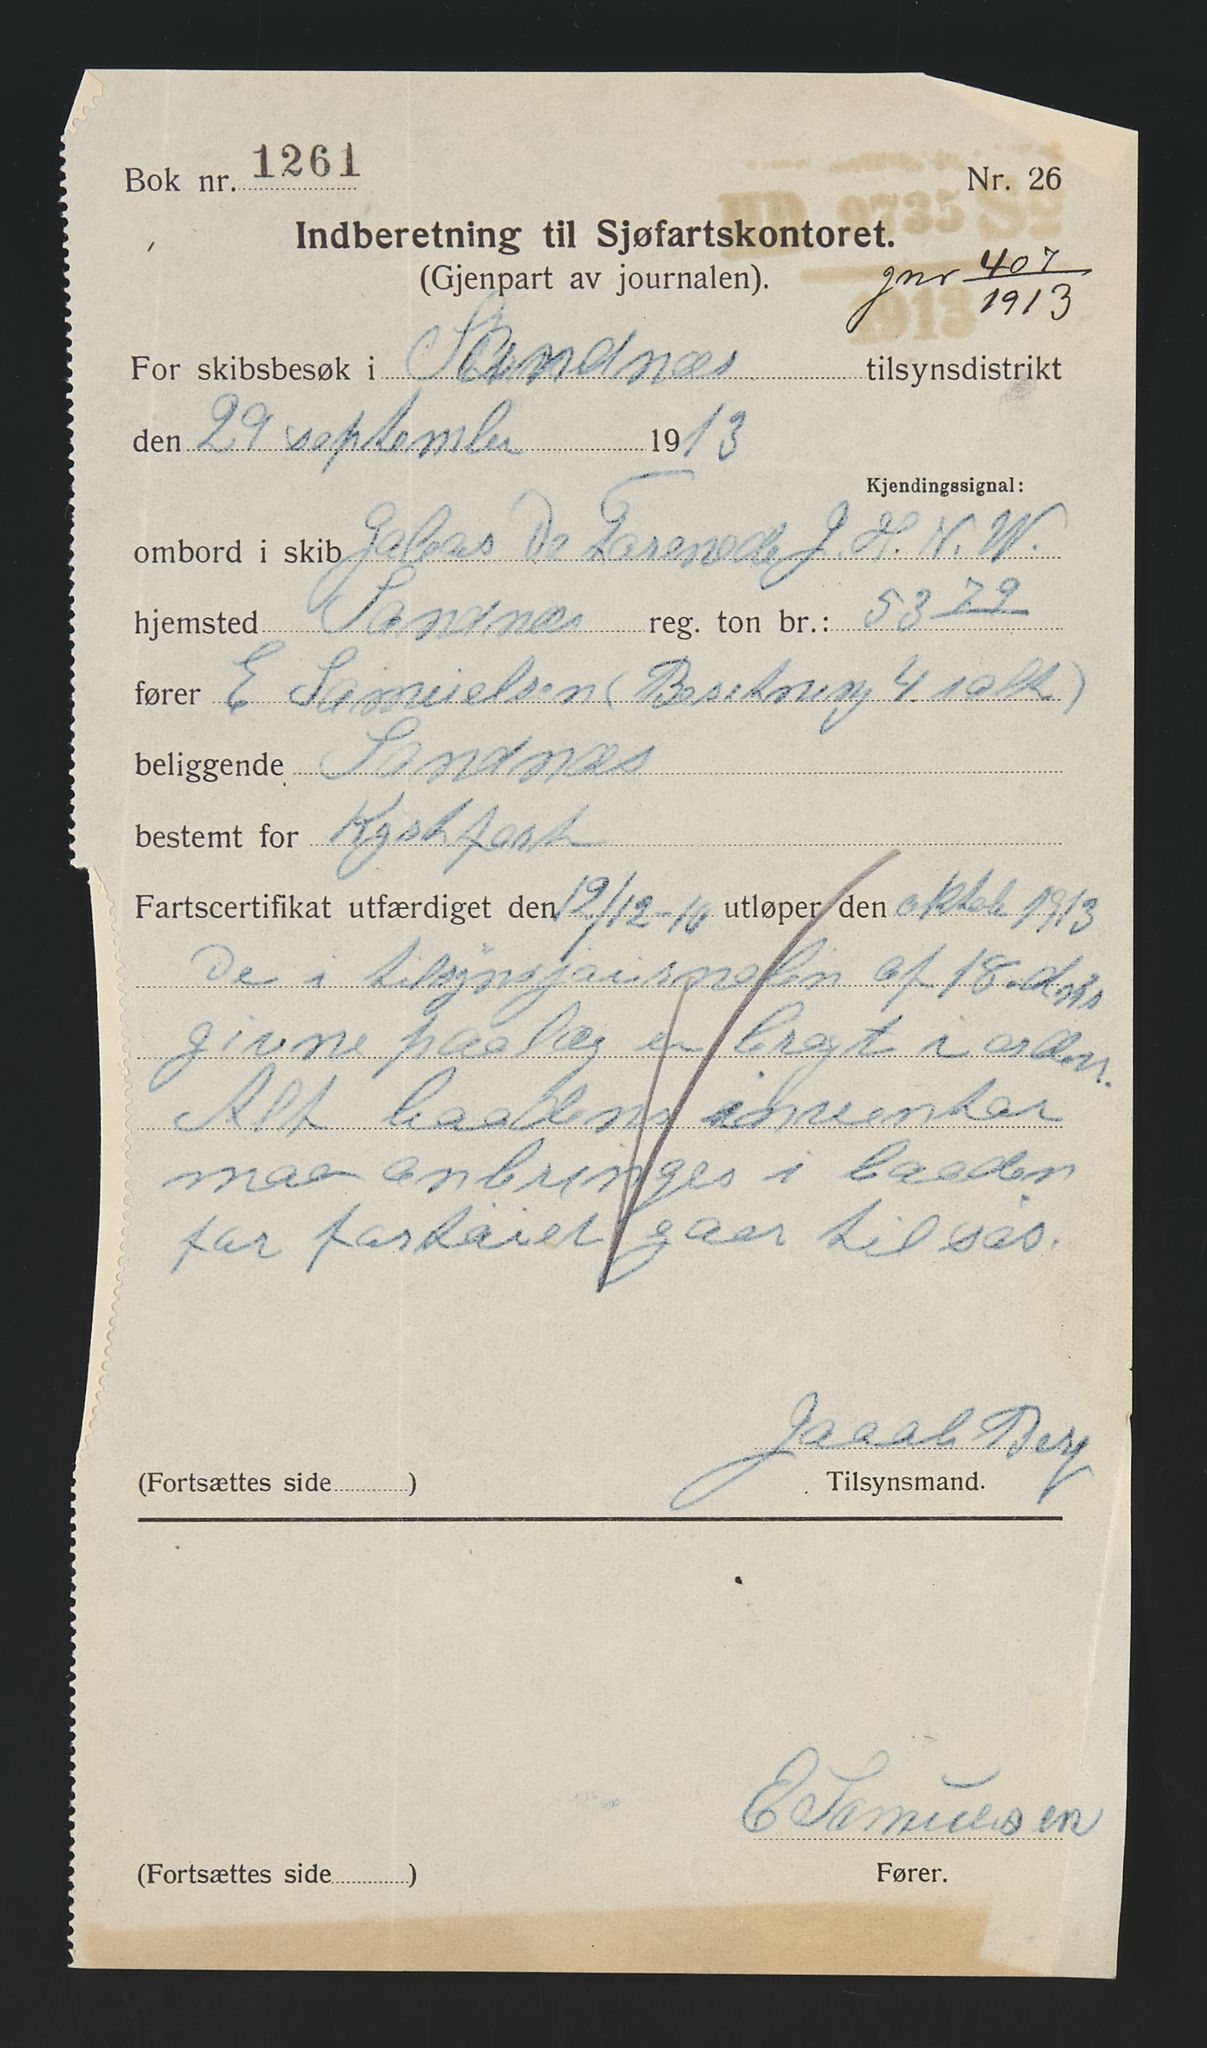 Bok nr. 1261
Nr. 26
HD 9735 S9
1913
Indberetning til Sjøfartskontoret.
(Gjenpart av journalen).
gnr 407/1913
For skibsbesøk i Sandnæs tilsynsdistrikt
den 29 september 1913
Kjendingssignal:
ombord i skib Galeas De Forenede J. H. N. W.
hjemsted Sandnæs reg. ton br.: 53 79
fører E Samuelsen (Besetning 4 salt)
beliggende Sandnæs
bestemt for Kystfart
Fartscertifikat utfærdiget den 12/12-10 utløper den oktob 1913
De i tilsynsjournalen af 18. dns
givne paalæg er bragt i orden.
Alt baadens inventar
maa anbringes i baaden
før fartøiet gaar til søs.
Jacob Berg
(Fortsættes side ) Tilsynsmand.
E Samuelsen
(Fortsættes side ) Fører.